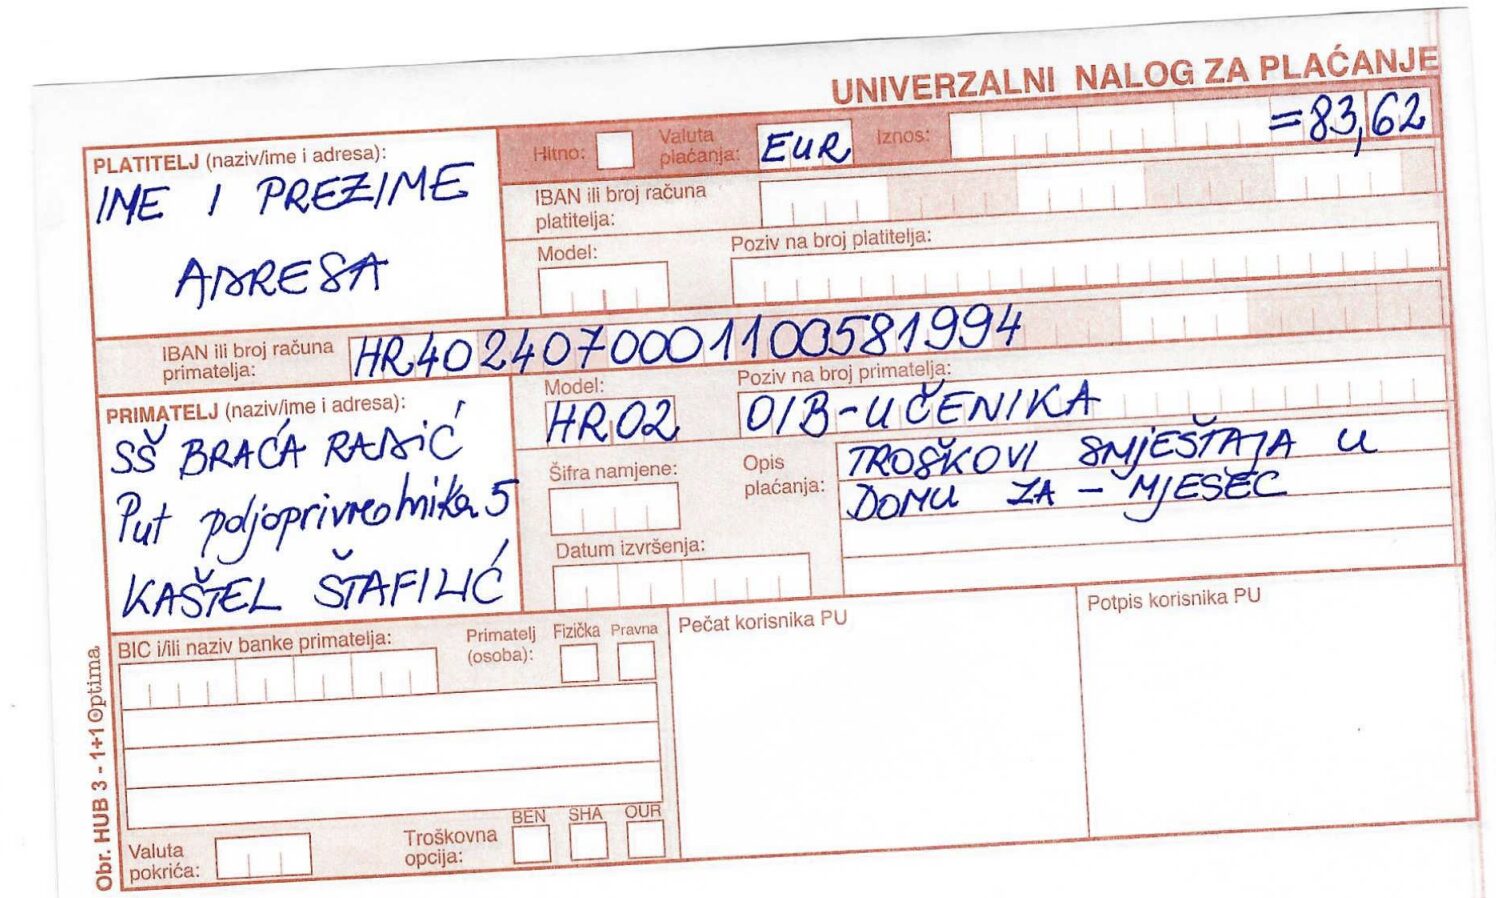 UNIVERZALNI NALOG ZA PLAĆANJE
PLATITELJ (naziv/ime i adresa):
IME I PREZIME
ADRESA
Hitno:
Valuta plaćanja: EUR
Iznos: =83,62
IBAN ili broj računa platitelja:
Model:
Poziv na broj platitelja:
IBAN ili broj računa primatelja: HR4024070001100581994
PRIMATELJ (naziv/ime i adresa):
SŠ BRAĆA RADIĆ
Put poljoprivrednika 5
KAŠTEL ŠTAFILIĆ
Model:
HR02
Poziv na broj primatelja:
OIB-UČENIKA
Šifra namjene:
Opis plaćanja:
TROŠKOVI SMJEŠTAJA U
DOMU ZA - MJESEC
Datum izvršenja:
BIC i/ili naziv banke primatelja:
Primatelj (osoba):
Fizička
Pravna
Pečat korisnika PU
Potpis korisnika PU
Valuta pokrića:
Troškovna opcija:
BEN
SHA
OUR
Obr. HUB 3 - 1+1 Optima